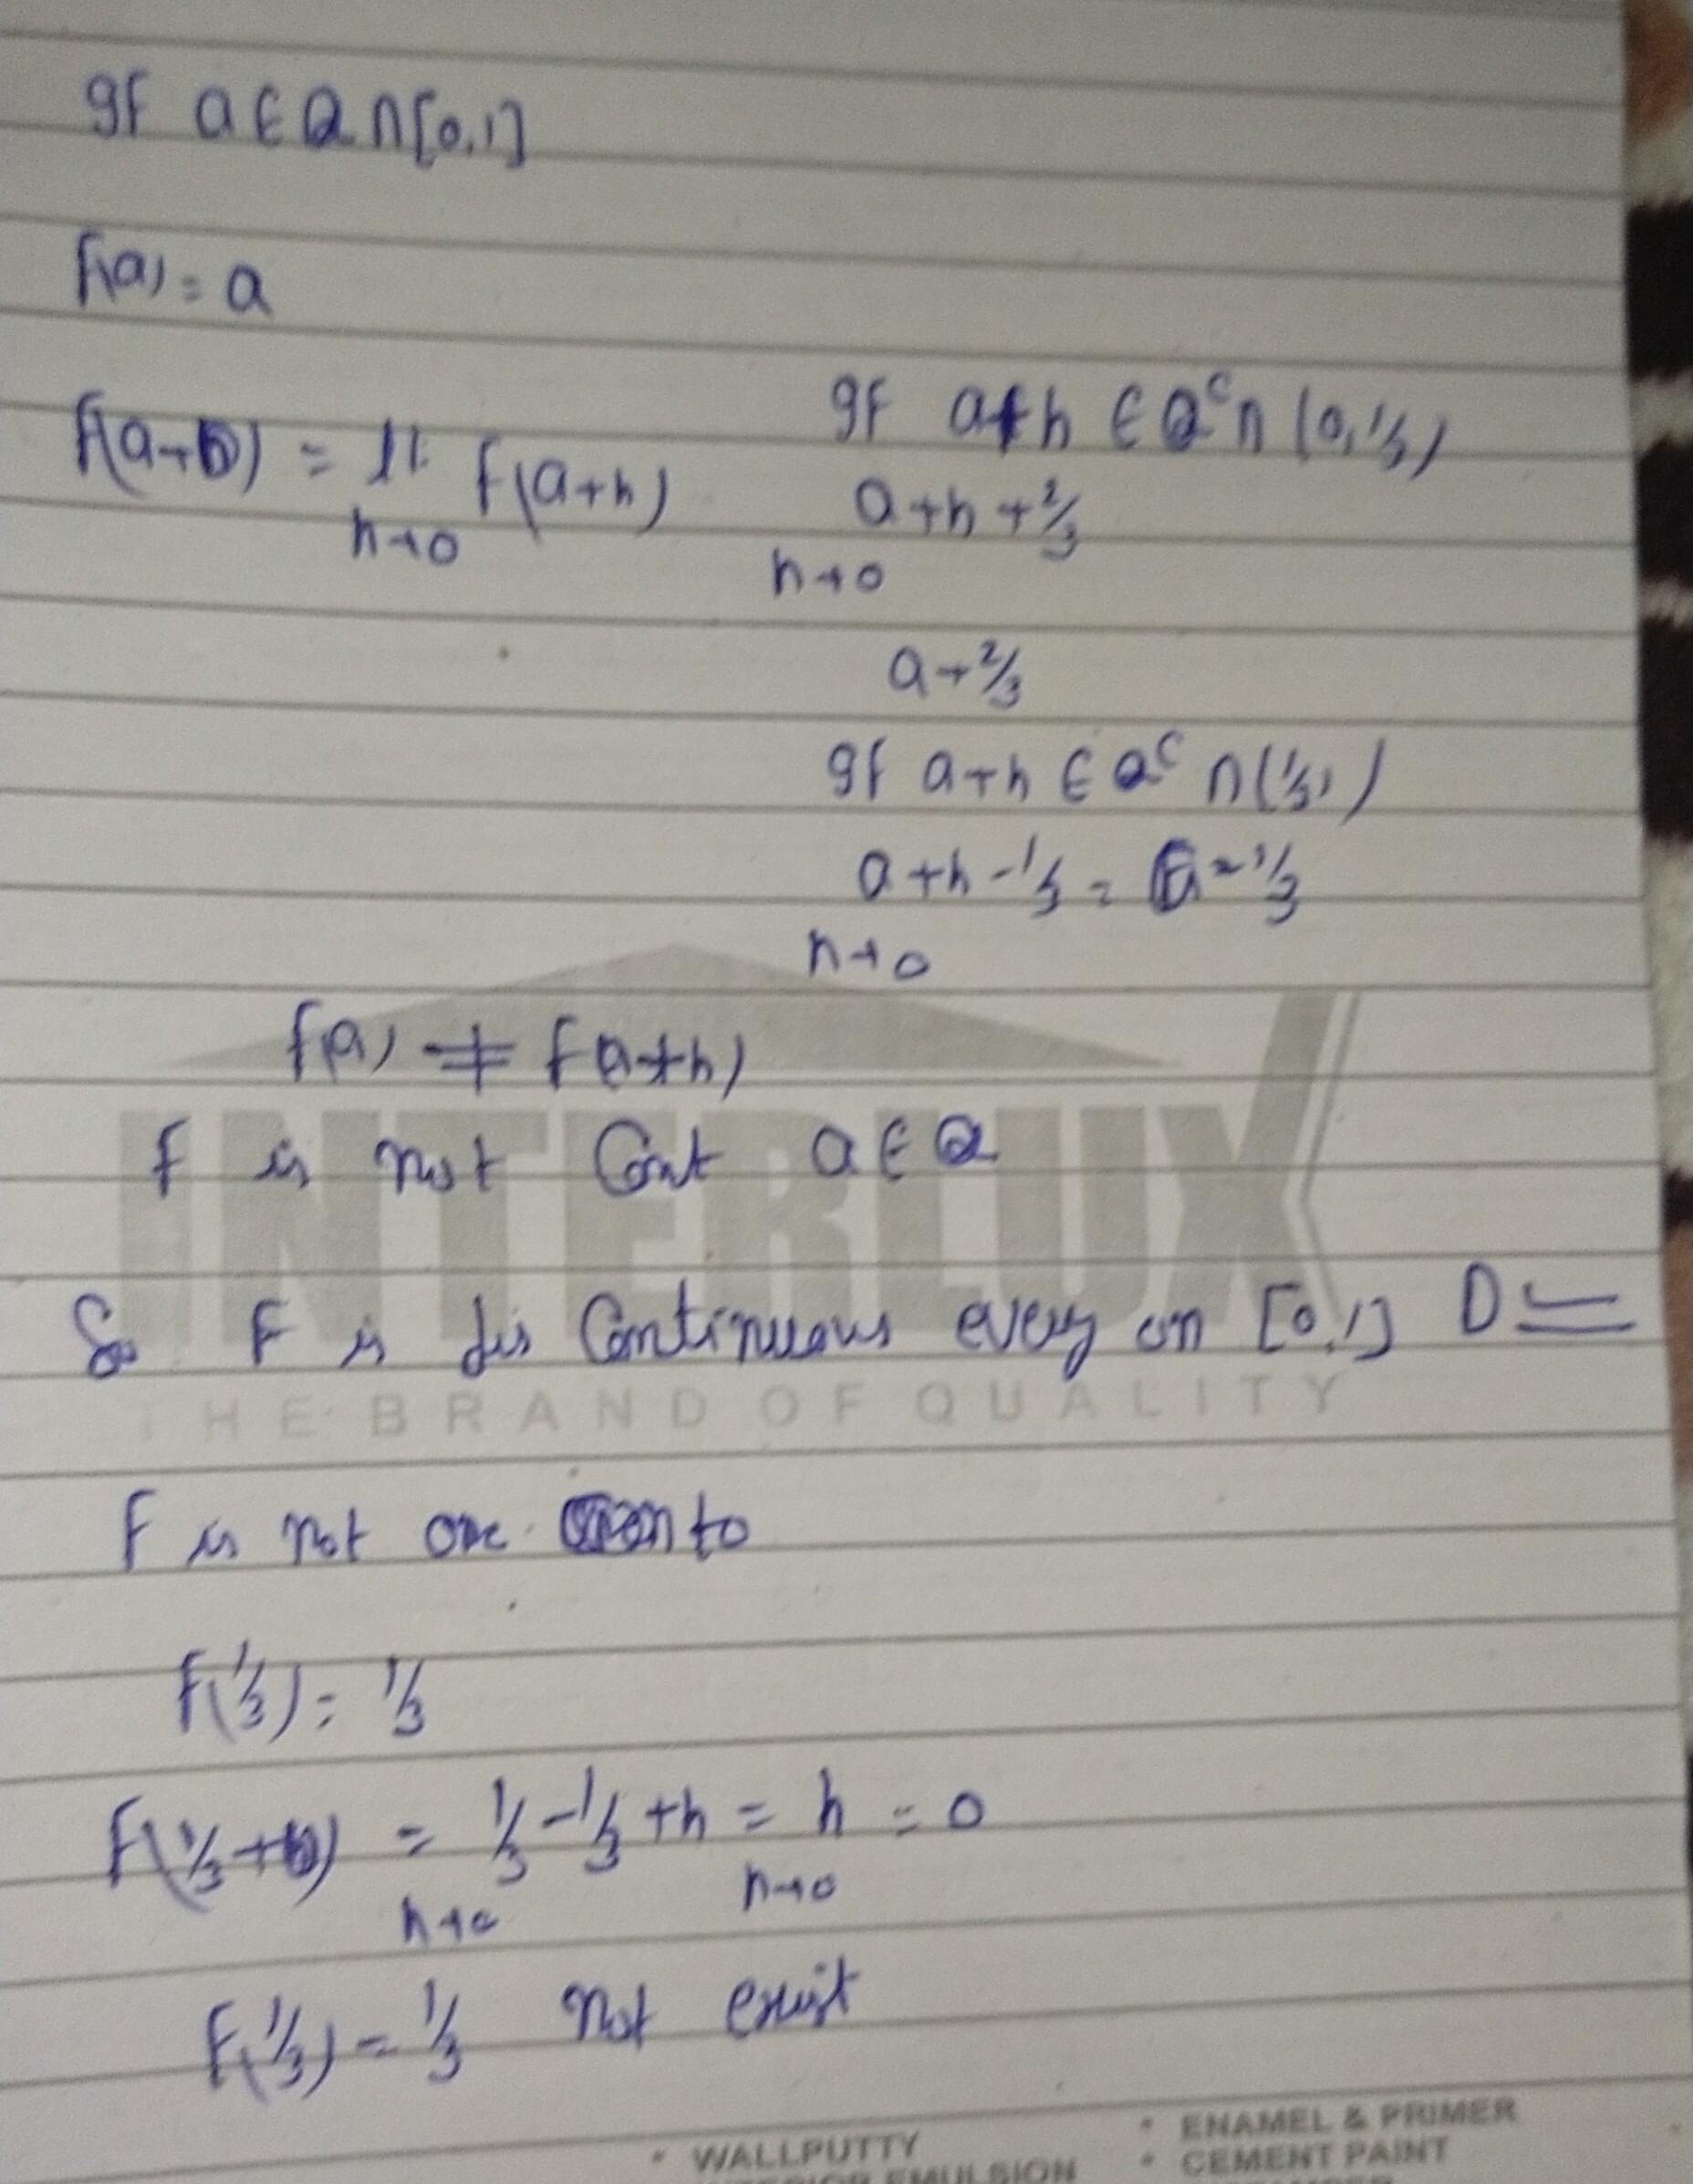 If a ∈ Q ∩ [0,1]
f(a) = a
f(a+0) = lt f(a+h)
h→0
If a+h ∈ Q^c ∩ (0,1/3)
a+h+2/3
h→0
a+2/3
If a+h ∈ Q^c ∩ (1/3,1)
a+h-1/3 = a-1/3
h→0
f(a) ≠ f(a+h)
f is not Cont a ∈ Q
So F is dis Continuous every on [0,1] D
INTERLUX
THE BRAND OF QUALITY
F is not one onto
F(1/3) = 1/3
F(1/3+0) = 1/3-1/3+h = h = 0
h→0 h→0
F(1/3) = 1/3 not exist
• WALLPUTTY
• ENAMEL & PRIMER
EMULSION
• CEMENT PAINT